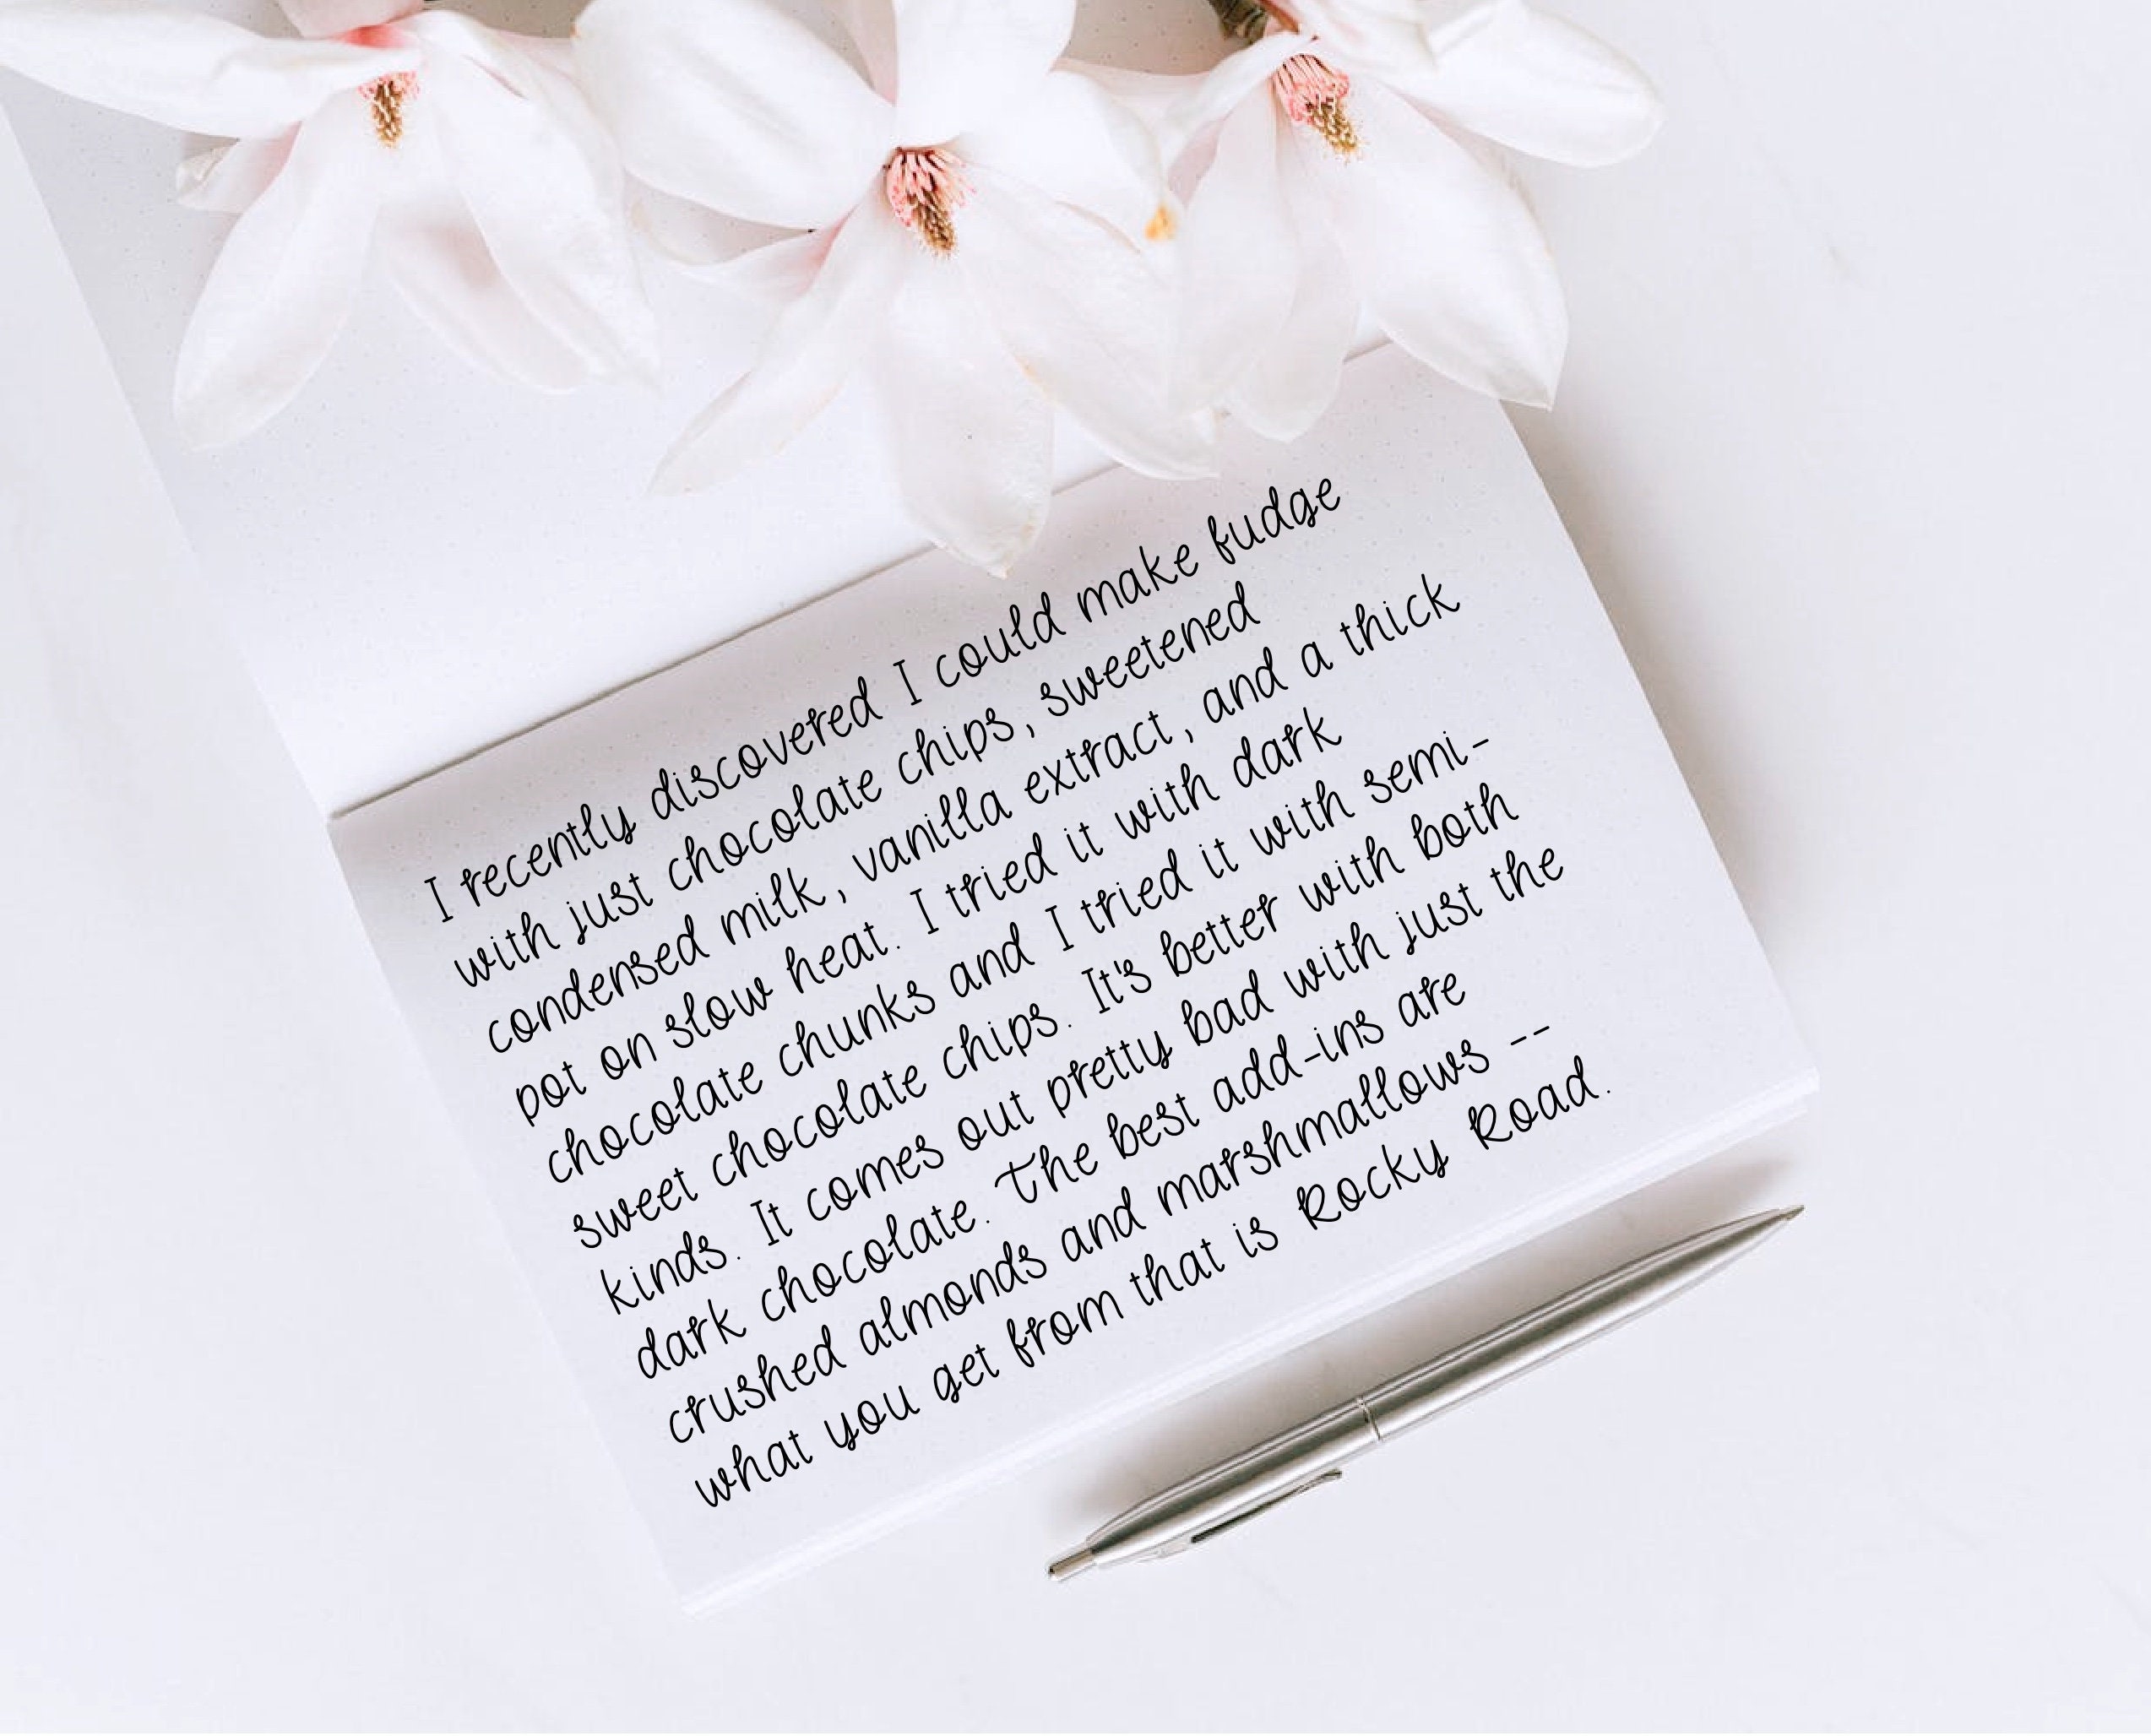 I recently discovered I could make fudge
with just chocolate chips, sweetened
condensed milk, vanilla extract, and a thick
pot on slow heat. I tried it with dark
chocolate chunks and I tried it with semi-
sweet chocolate chips. It's better with both
kinds. It comes out pretty bad with just the
dark chocolate. The best add-ins are
crushed almonds and marshmallows --
what you get from that is Rocky Road.